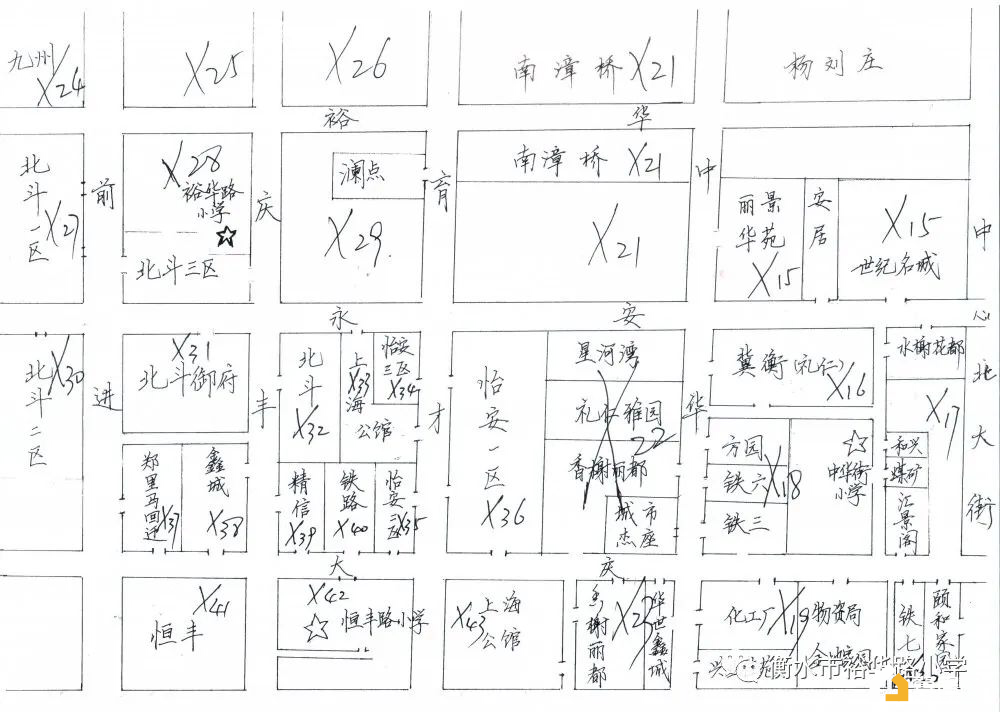 九州
X24
X25
X26
南漳桥 X21
杨刘庄
裕
华
北斗一区
X27
前
X28
裕华路
小学
北斗三区
庆
澜点
X29
育
南漳桥 X21
X21
中
丽景
华苑
X15
安居
X15
世纪名城
中
永
安
心
北斗二区
X30
进
X31
北斗御府
丰
北斗
X32
上海
X33
公馆
怡安
三区
X34
才
怡安一区
X36
星河湾
礼仁雅园
22
香榭丽都
城市
杰座
华
冀衡(礼仁)
X16
水榭花都
X17
北大街
郑里马回迁
X37
鑫城
X38
精信
X39
铁路
X40
怡安二区
X35
方园
铁六
铁三
X18
中华街
小学
和兴
煤矿
汇景阁
大
庆
X41
恒丰
X42
恒丰路小学
X43
上海
公馆
香榭丽都
华世鑫城
化工厂
X19
物资局
铁七
颐和家园
衡水市裕华路小学